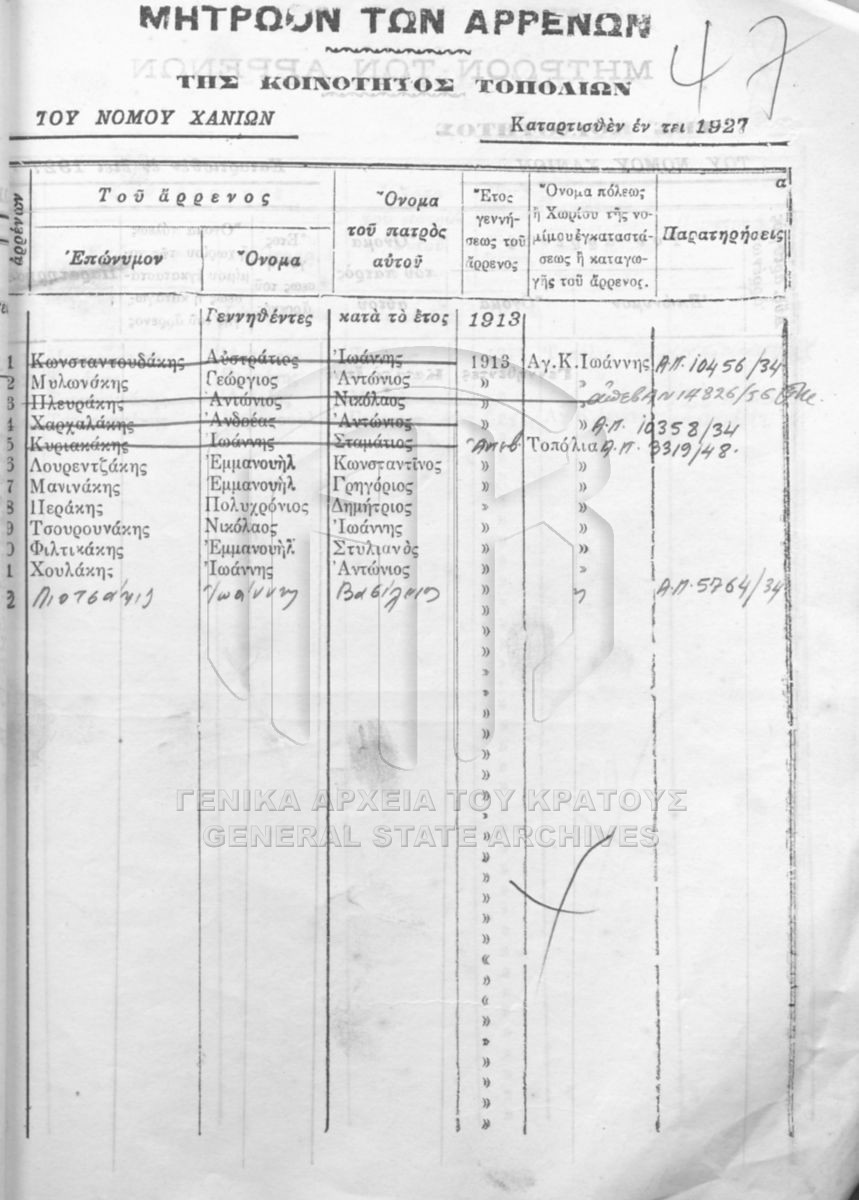 ΜΗΤΡΩΟΝ ΤΩΝ ΑΡΡΕΝΩΝ
47
ΤΗΣ ΚΟΙΝΟΤΗΤΟΣ ΤΟΠΟΛΙΩΝ
ΤΟΥ ΝΟΜΟΥ ΧΑΝΙΩΝ
Καταρτισθὲν ἐν τει 1927
ἀρρένων
Τοῦ ἄρρενος
Ἐπώνυμον Ὄνομα
Ὄνομα
τοῦ πατρὸς
αὐτοῦ
Ἔτος
γεννή-
σεως τοῦ
ἄρρενος
Ὄνομα πόλεως
ἢ Χωρίου τῆς νο-
μίμου ἐγκαταστά-
σεως ἢ καταγω-
γῆς τοῦ ἄρρενος.
α
Παρατηρήσεις
Γεννηθέντες κατὰ τὸ ἔτος 1913
1 Κωνσταντουδάκης Αὐστράτιος Ἰωάννης 1913 Αγ.Κ.Ιωάννης Α.Π. 10456/34
2 Μυλωνάκης Γεώργιος Ἀντώνιος » »
3 Πλευράκης Ἀντώνιος Νικόλαος » » ἀπεβ ΑΝ 14826/56
4 Χαρχαλάκης Ἀνδρέας Ἀντώνιος » » Α.Π. 10358/34
5 Κυριακάκης Ἰωάννης Σταμάτιος Ἀπεβ Τοπόλια Α.Π. 3319/48.
6 Λουρεντζάκης Ἐμμανουὴλ Κωνσταντῖνος » »
7 Μανινάκης Ἐμμανουὴλ Γρηγόριος » »
8 Περάκης Πολυχρόνιος Δημήτριος » »
9 Τσουρουνάκης Νικόλαος Ἰωάννης » »
0 Φιλτικάκης Ἐμμανουὴλ Στυλιανὸς » »
1 Χουλάκης Ἰωάννης Ἀντώνιος » »
2 Πιοτσάκις Ἰωάννης Βασίλειος » » Α.Π. 5764/34
»
»
»
»
»
»
»
»
»
»
ΓΕΝΙΚΑ ΑΡΧΕΙΑ ΤΟΥ ΚΡΑΤΟΥΣ
GENERAL STATE ARCHIVES
»
»
»
»
»
»
«
»
«
»
»
»
»
»
»